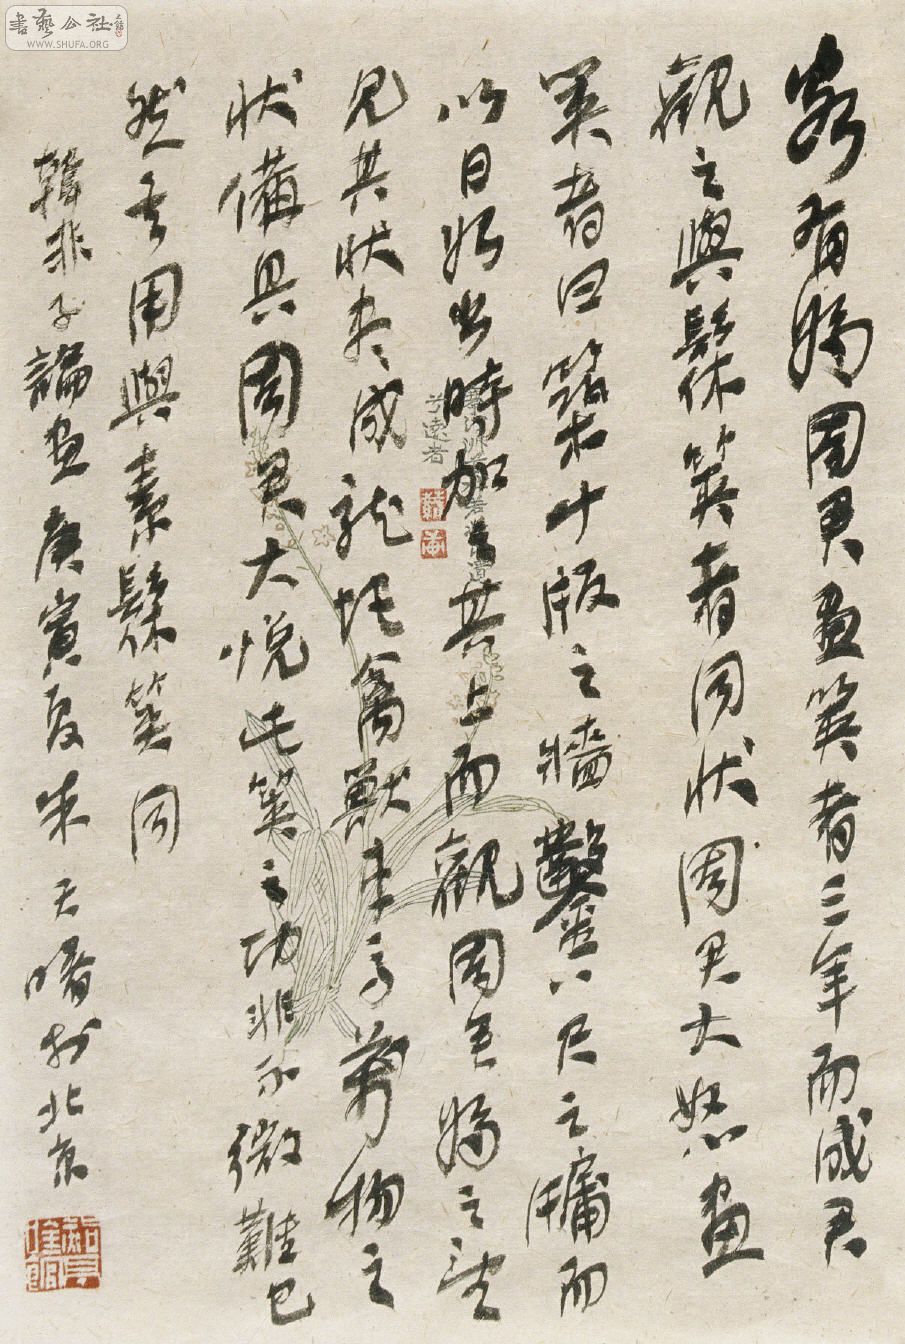 客有為周君畫筴者三年而成君
觀之與髹筴者同狀周君大怒畫
筴者曰築十版之牆鑿八尺之牖而
以日始出時加之其上而觀周君為之望
見其狀盡成龍蛇禽獸車馬萬物之
狀備具周君大悅此筴之功非不微難也
然其用與素髹筴同
韓非子論畫庚寅夏朱天曙於北京
書藝公社
WWW.SHUFA.ORG